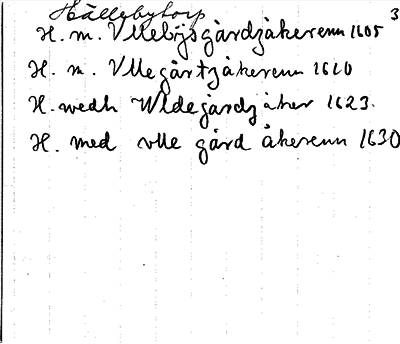 Hällebytorp
3
H. m. Vllebÿsgårdzåkerenn 1605
H. m. Vllegårtzåkerenn 1610
H. wedh Wldegårdz åker 1623.
H. med vlle gård åkerenn 1630